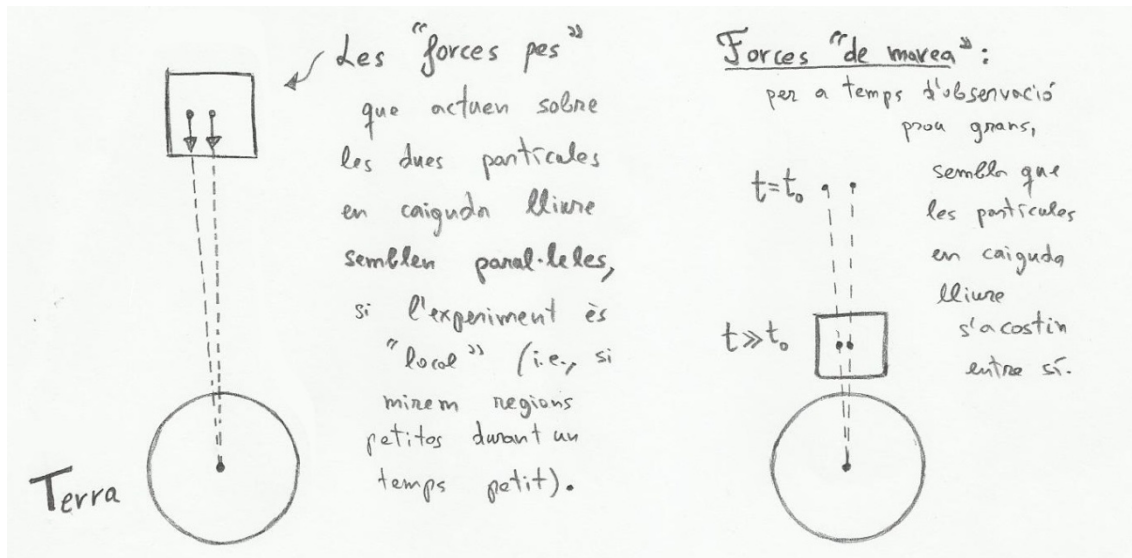 Les "forces pes"
que actuen sobre
les dues partícules
en caiguda lliure
semblen paral·leles,
si l'experiment és
"local" (i.e., si
mirem regions
petites durant un
temps petit).
Terra
Forces "de marea":
per a temps d'observació
prou grans,
sembla que
les partícules
en caiguda
lliure
s'acostin
entre sí.
t=t₀
t≫t₀